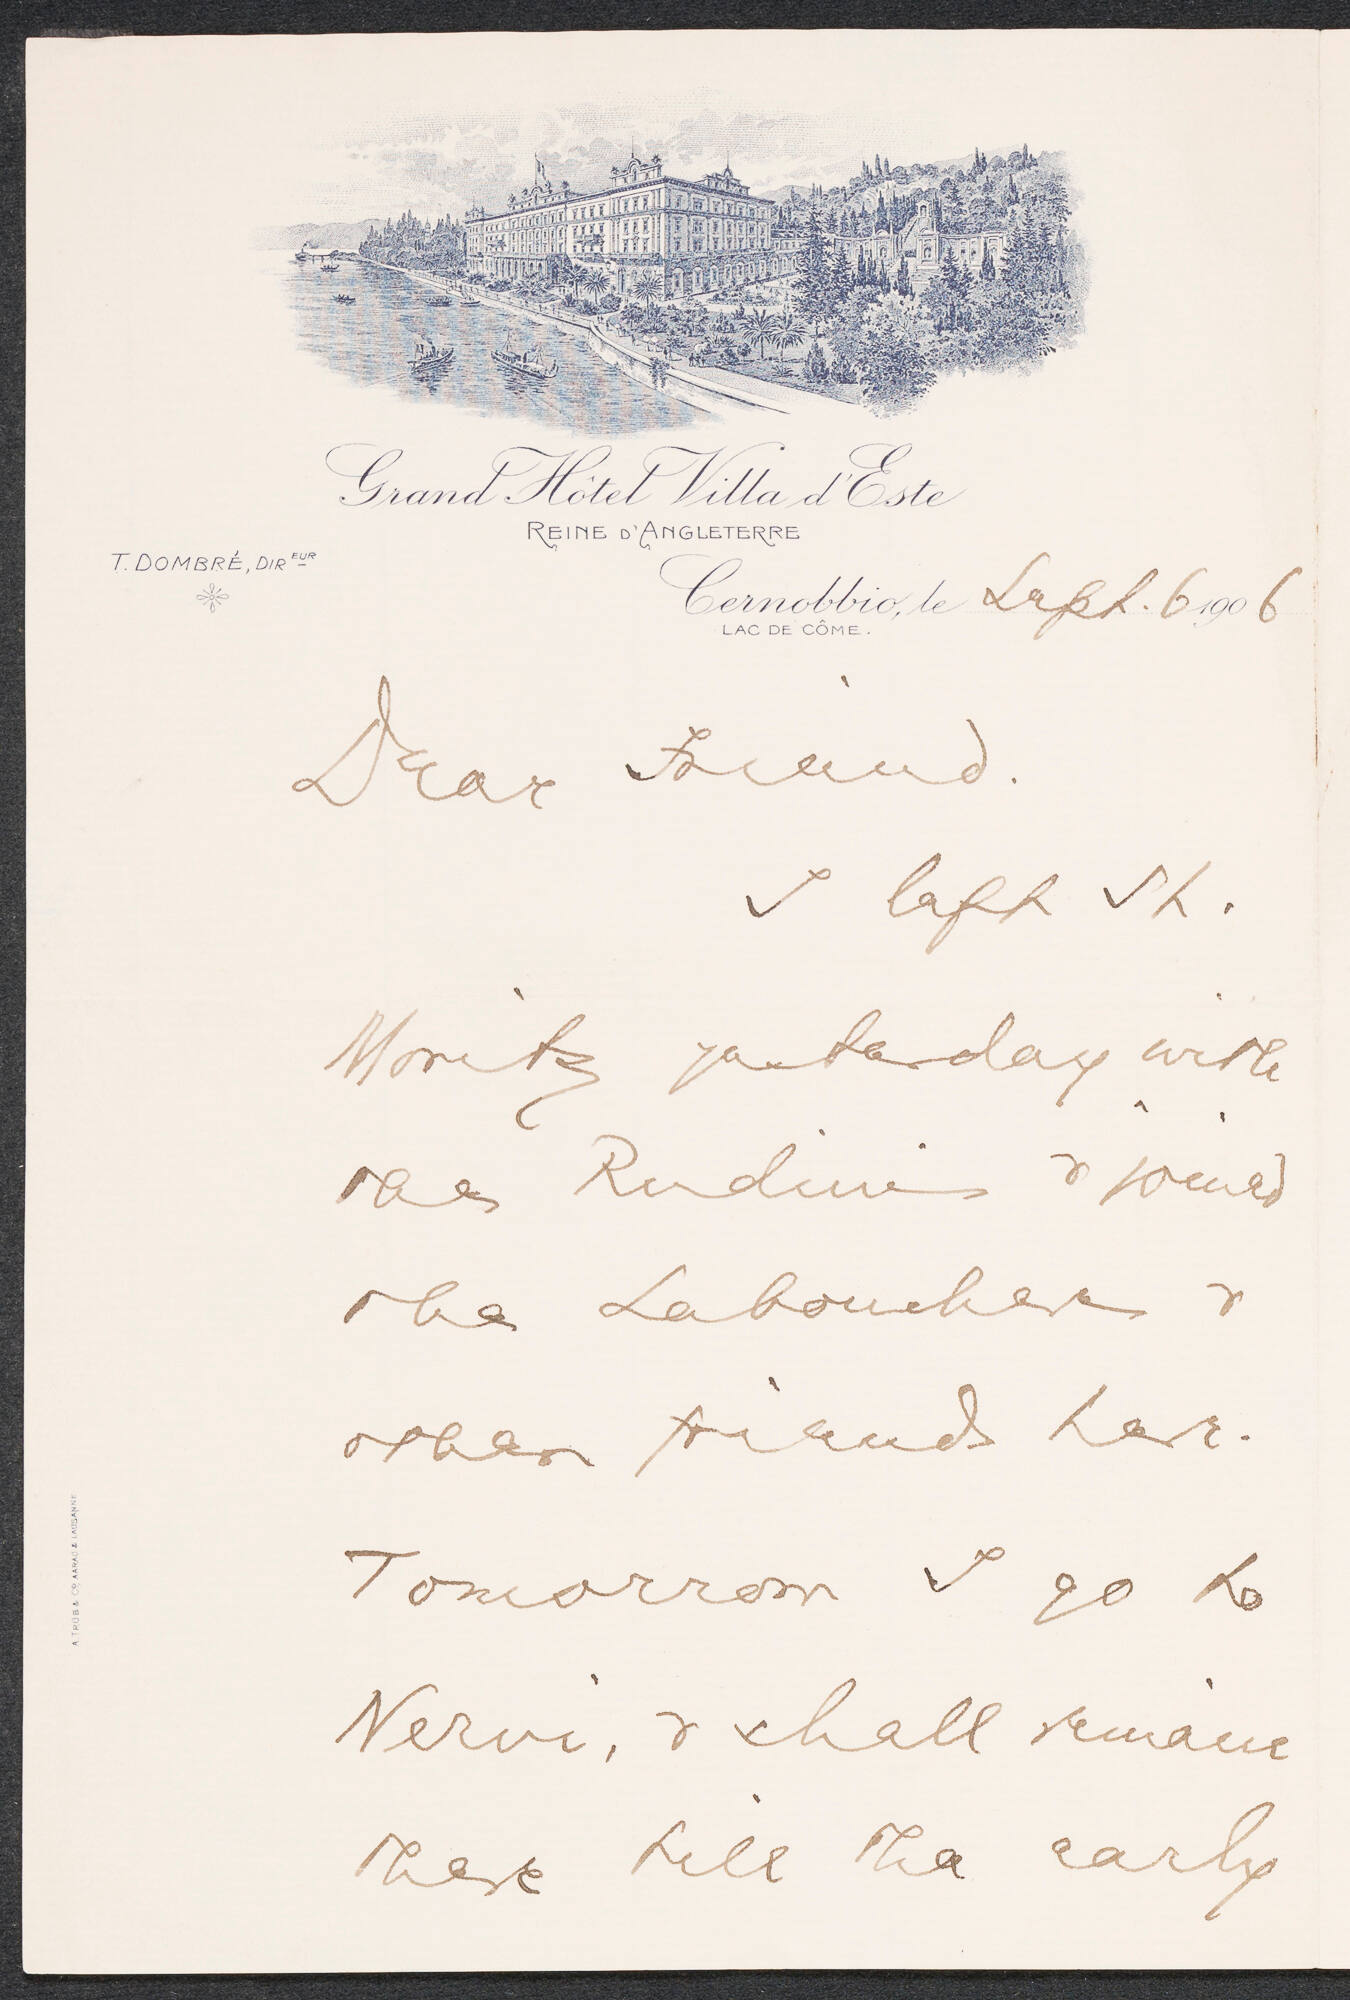 Grand Hôtel Villa d'Este
REINE D'ANGLETERRE
T. DOMBRÉ, DIREUR
Cernobbio, le Sept. 6 1906
LAC DE CÔME.
Dear Friend.
I left St.
Moritz yesterday with
the Rudinis & joined
the Labouchere &
other friends here.
Tomorrow I go to
Nervi, & shall remain
there till the early
A. TRÜB & CO. AARAU & LAUSANNE